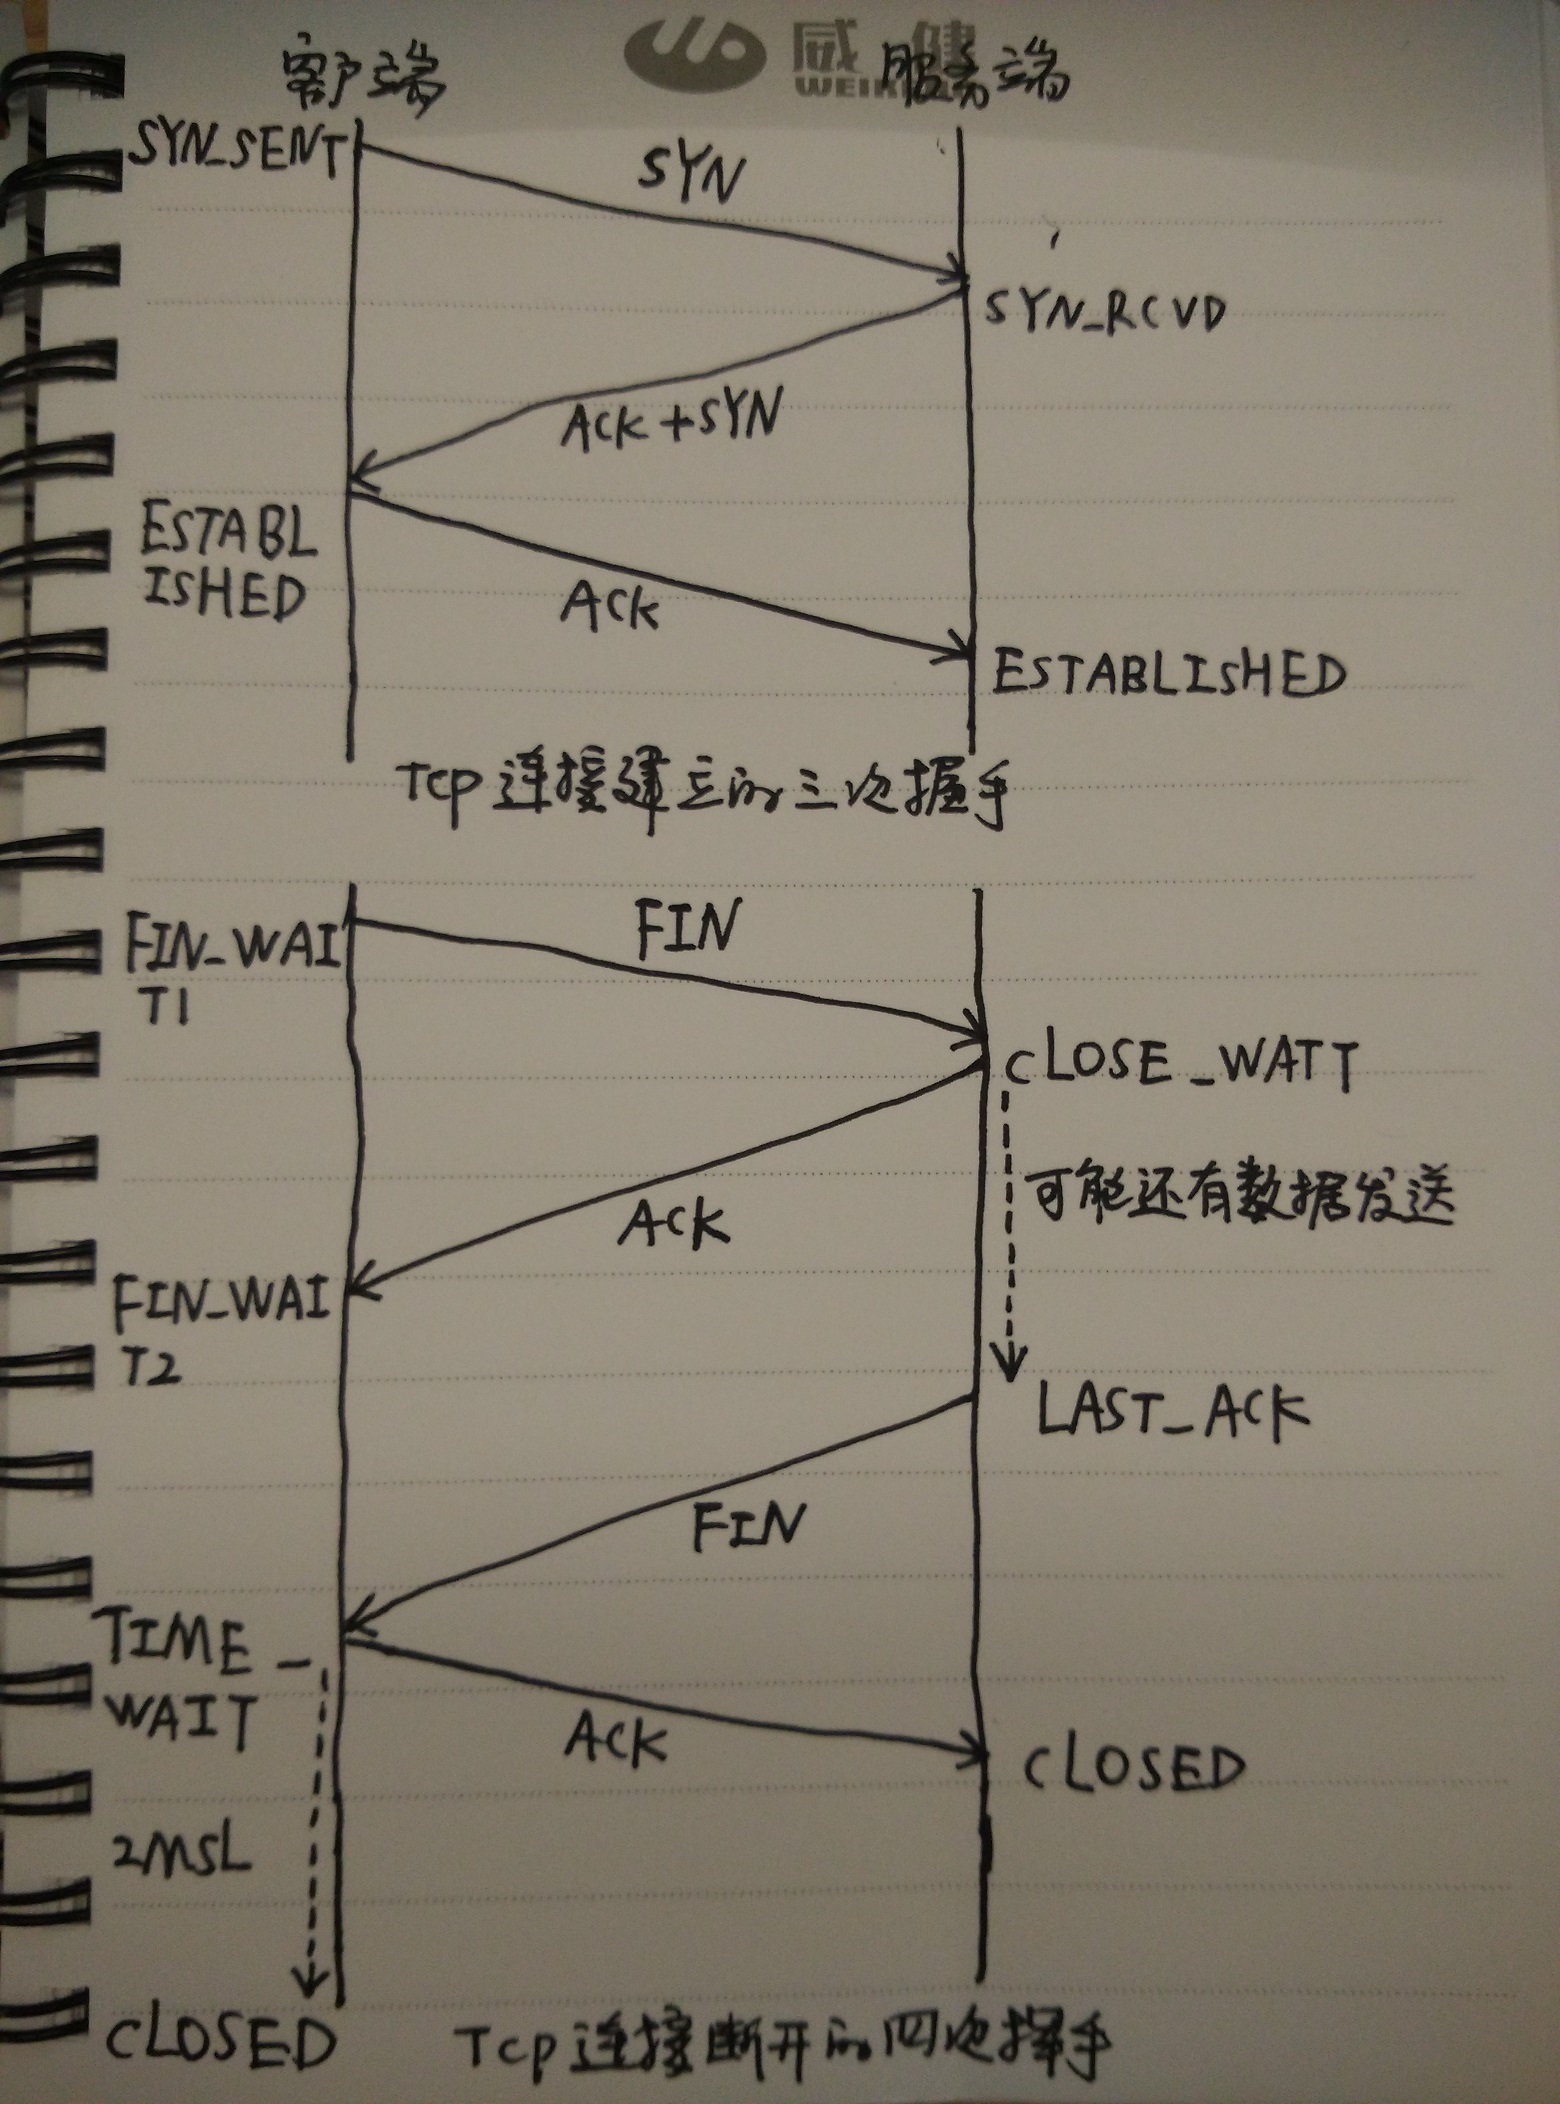 客户端
服务端
SYN_SENT
SYN
SYN_RCVD
ACK+SYN
ESTABL
ISHED
ACK
ESTABLISHED
TCP连接建立的三次握手
FIN_WAI
T1
FIN
CLOSE_WATT
可能还有数据发送
ACK
FIN_WAI
T2
LAST_ACK
FIN
TIME_
WAIT
ACK
CLOSED
2MSL
CLOSED
TCP连接断开的四次挥手